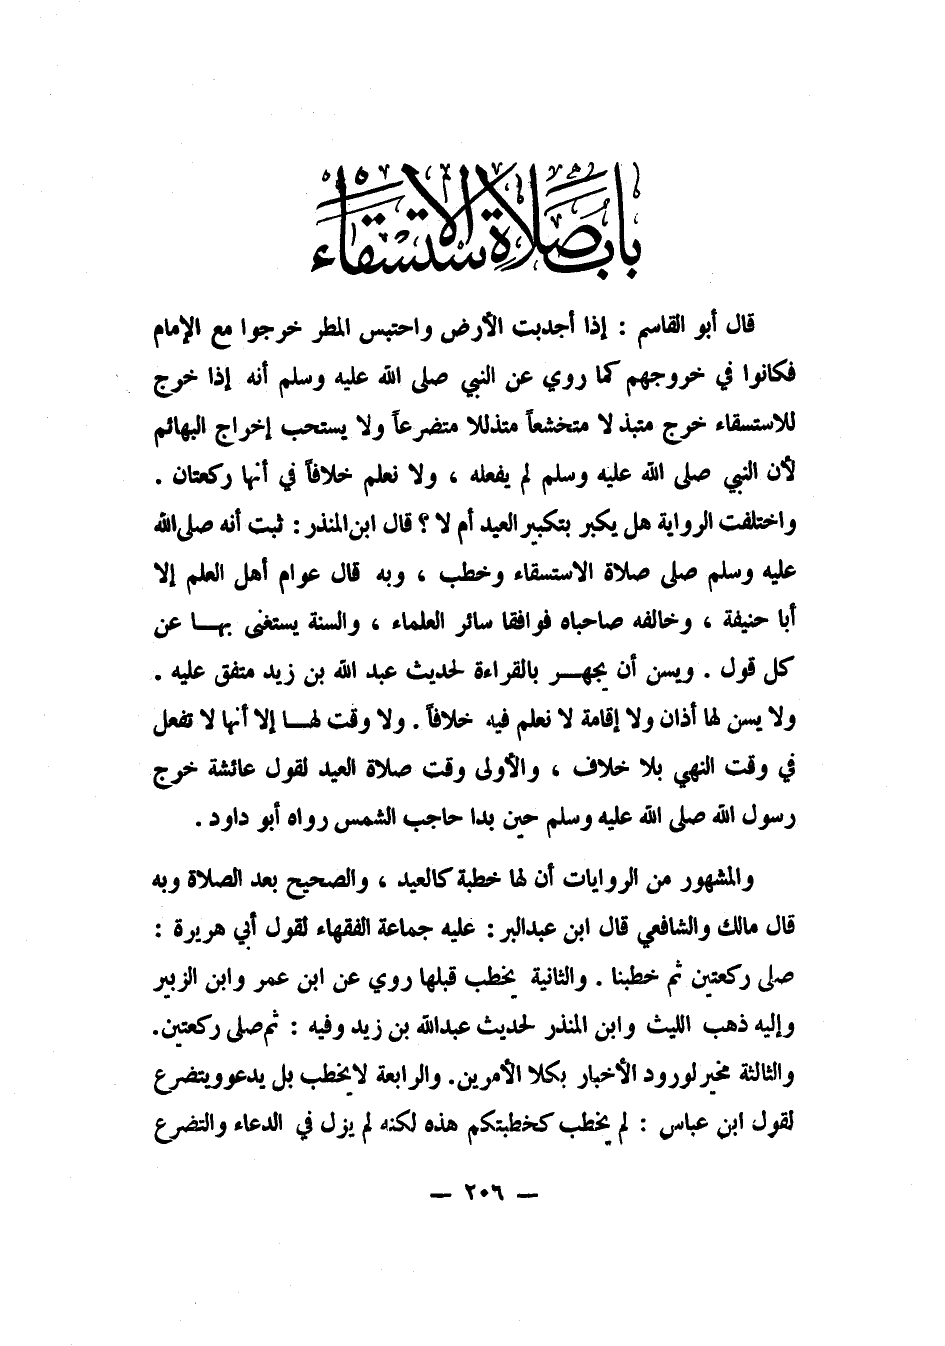 باب صلاة الاستسقاء
قال أبو القاسم : إذا أجدبت الأرض واحتبس المطر خرجوا مع الإمام
فكانوا في خروجهم كما روي عن النبي صلى الله عليه وسلم أنه إذا خرج
للاستسقاء خرج متبذلا متخشعاً متذللا متضرعاً ولا يستحب إخراج البهائم
لأن النبي صلى الله عليه وسلم لم يفعله ، ولا نعلم خلافاً في أنها ركعتان .
واختلفت الرواية هل يكبر بتكبير العيد أم لا ؟ قال ابن المنذر : ثبت أنه صلى الله
عليه وسلم صلى صلاة الاستسقاء وخطب ، وبه قال عوام أهل العلم إلا
أبا حنيفة ، وخالفه صاحباه فوافقا سائر العلماء ، والسنة يستغنى بهـــا عن
كل قول . ويسن أن يجهـــر بالقراءة لحديث عبد الله بن زيد متفق عليه .
ولا يسن لها أذان ولا إقامة لا نعلم فيه خلافاً . ولا وقت لهـــا إلا أنها لا تفعل
في وقت النهي بلا خلاف ، والأولى وقت صلاة العيد لقول عائشة خرج
رسول الله صلى الله عليه وسلم حين بدا حاجب الشمس رواه أبو داود .
والمشهور من الروايات أن لها خطبة كالعيد ، والصحيح بعد الصلاة وبه
قال مالك والشافعي قال ابن عبدالبر : عليه جماعة الفقهاء لقول أبي هريرة :
صلى ركعتين ثم خطبنا . والثانية يخطب قبلها روي عن ابن عمر وابن الزبير
وإليه ذهب الليث وابن المنذر لحديث عبدالله بن زيد وفيه : ثم صلى ركعتين.
والثالثة مخير لورود الأخبار بكلا الأمرين. والرابعة لا يخطب بل يدعو ويتضرع
لقول ابن عباس : لم يخطب كخطبتكم هذه لكنه لم يزل في الدعاء والتضرع
— ٢٠٦ —